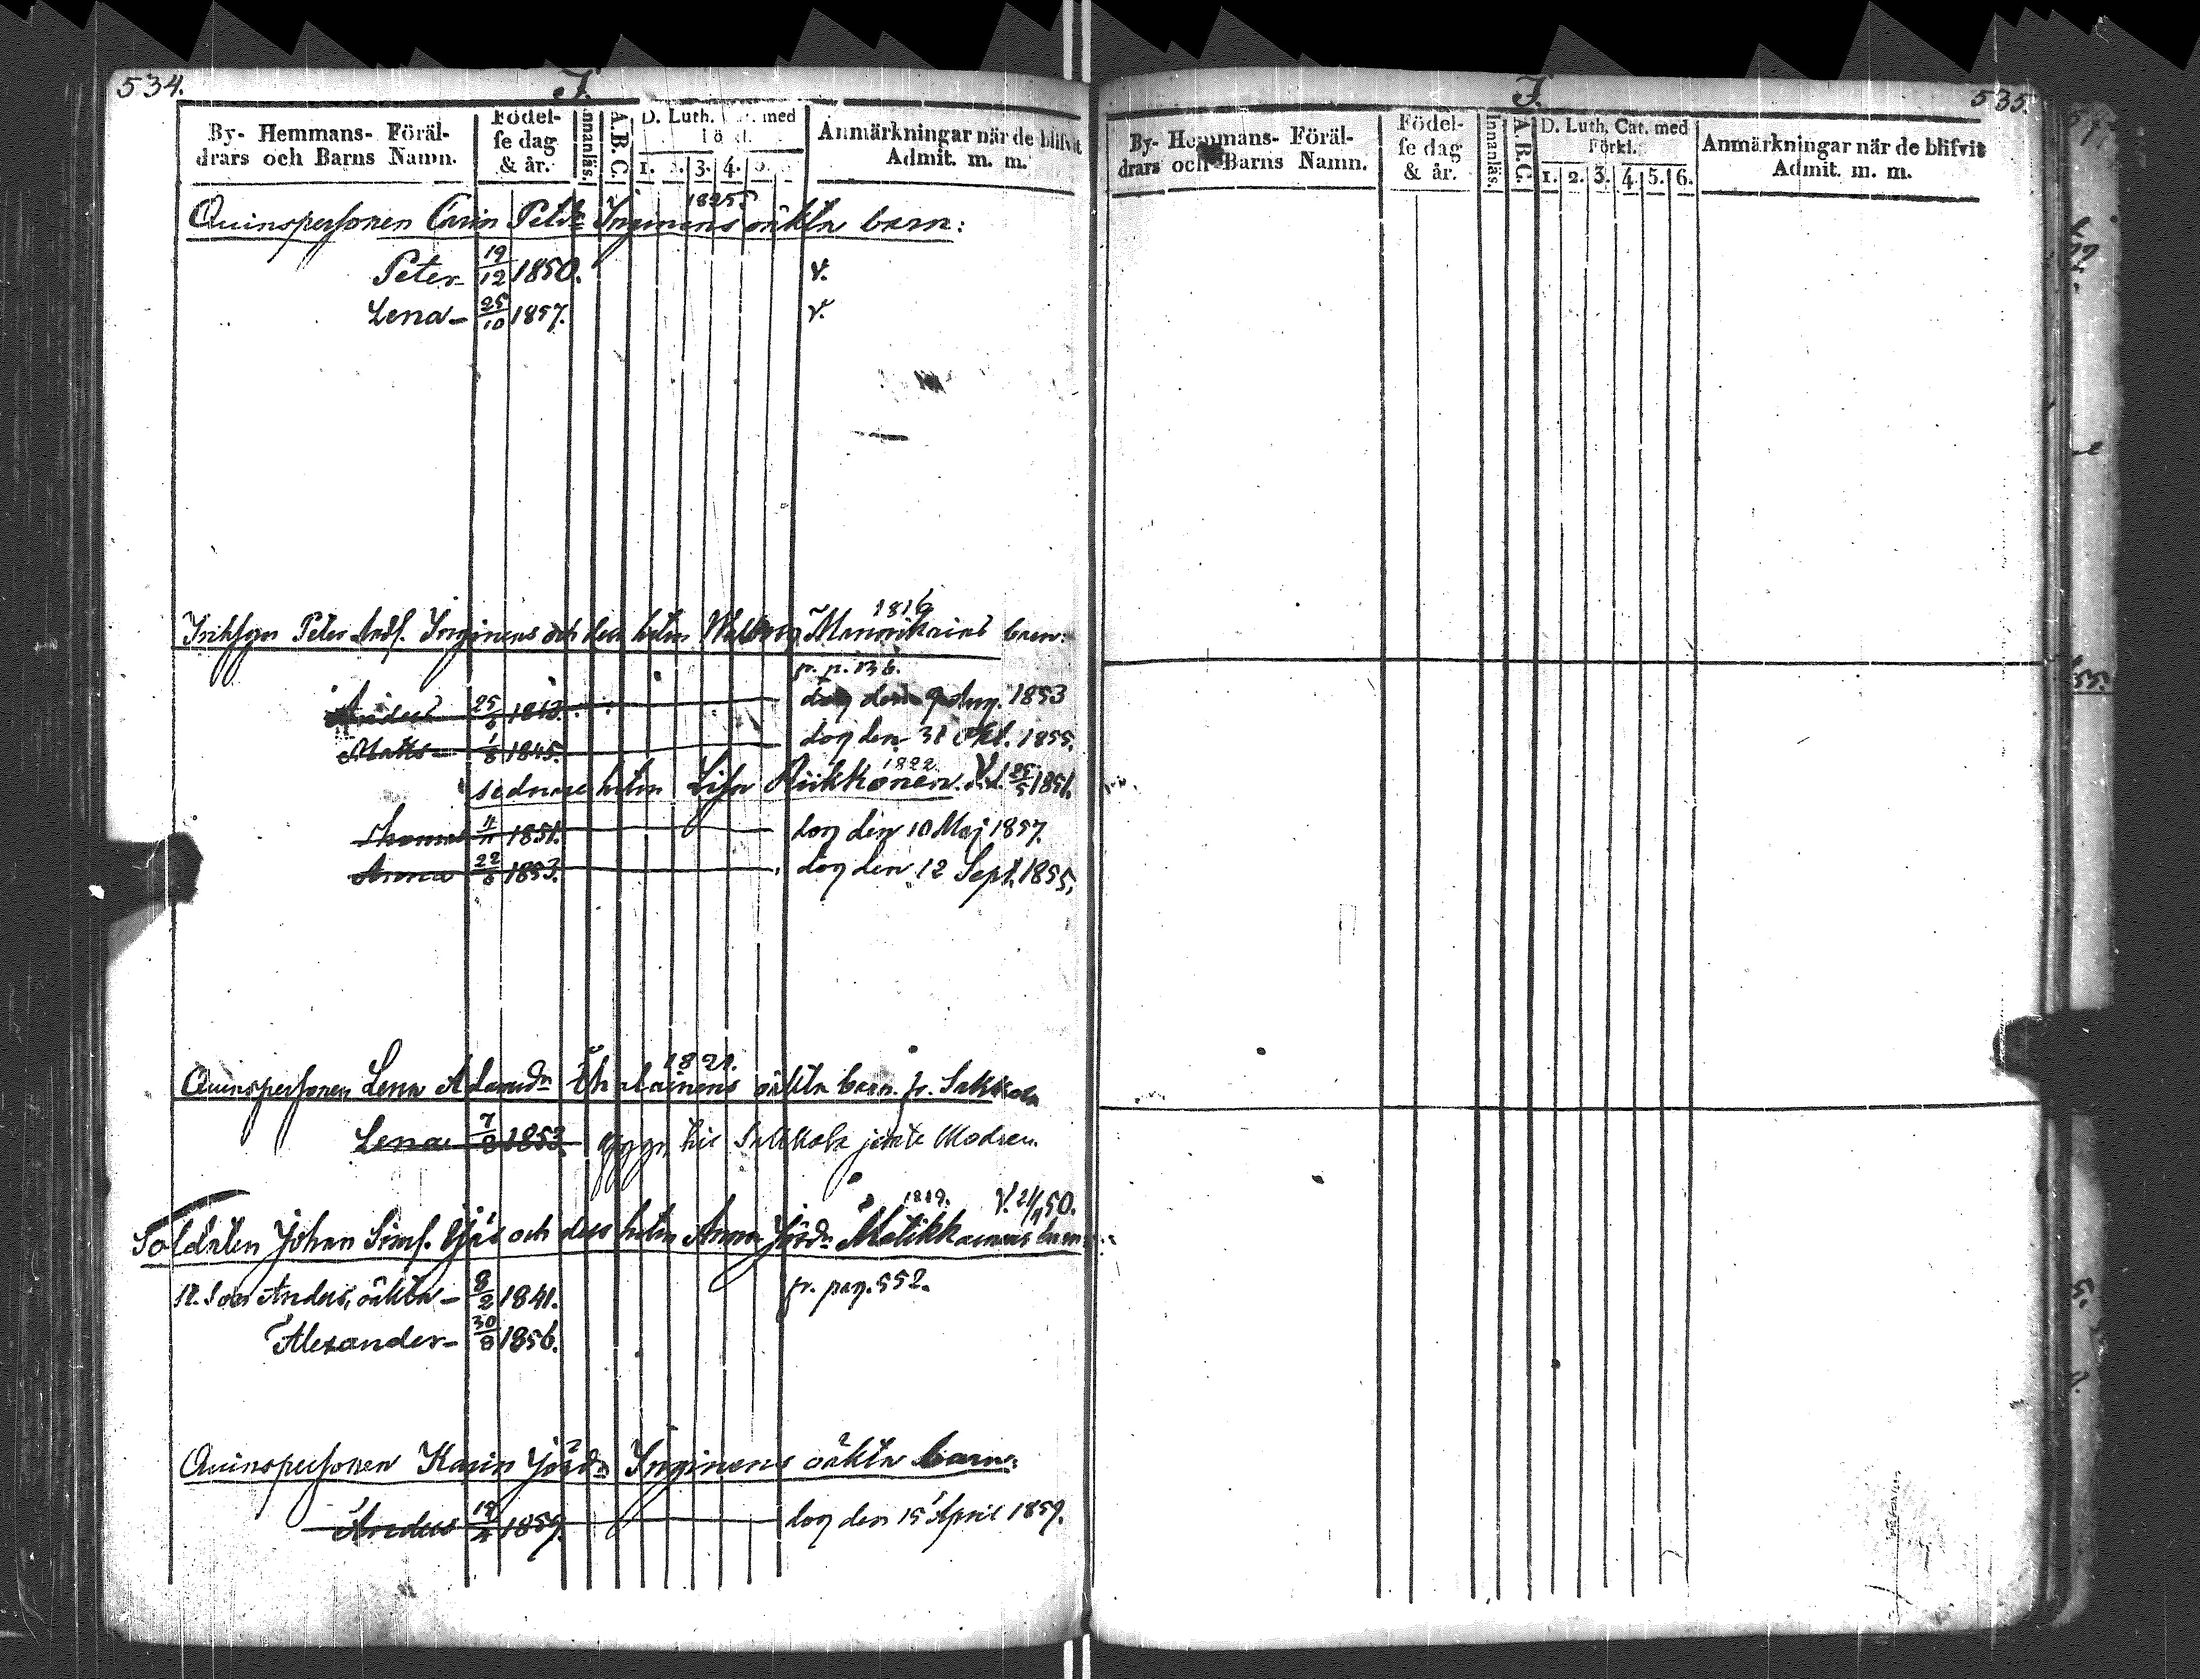 534.
I.
By- Hemmans- Föräl-
drars och Barns Namn.
Födel-
se dag
& år.
Innanläs.
A.B.C.
D. Luth. Cat. med
Förkl.
1. 2. 3. 4. 5.
Anmärkningar när de blifvit
Admit. m. m.
1825
Quinspersonen Carin Petdr Inginens oäkta barn:
Peter 19/12 1850. v.
Lena 25/10 1857. v.
1816
Peter Andf. Inginens och dess hstru Walborg barn:
p. p. 136.
Anders 25 1843. dog den 9 Aug. 1853
Matts 1/8 1845. dog den 31 Okt. 1855.
1822
sednare hstru Lisa Riikkonen. V. 25/5 1851.
Thomas 11/11 1851. dog den 10 Maj 1857.
Anna 22/8 1853. dog den 12 Sept. 1855.
1821.
Quinspersonen Lena Adamdr oäkta barn. fr. Sakkola
Lena 7/8 1853. till Sakkola jemte Modren.
1819. V. 21/11 50.
Soldaten Johan Simf. och dess hstru Anna Jördr Matikkainens barn
Anders, oäkta 8/2 1841. fr. pag. 552.
Alexander 30/8 1856.
Quinspersonen Karin Jördr Inginens oäkta barn:
Anders 1859. dog den 15 April 1859.
I.
535.
By- Hemmans- Föräl-
drars och Barns Namn.
Födel-
se dag
& år.
Innanläs.
A.B.C.
D. Luth. Cat. med
Förkl.
1. 2. 3. 4. 5. 6.
Anmärkningar när de blifvit
Admit. m. m.